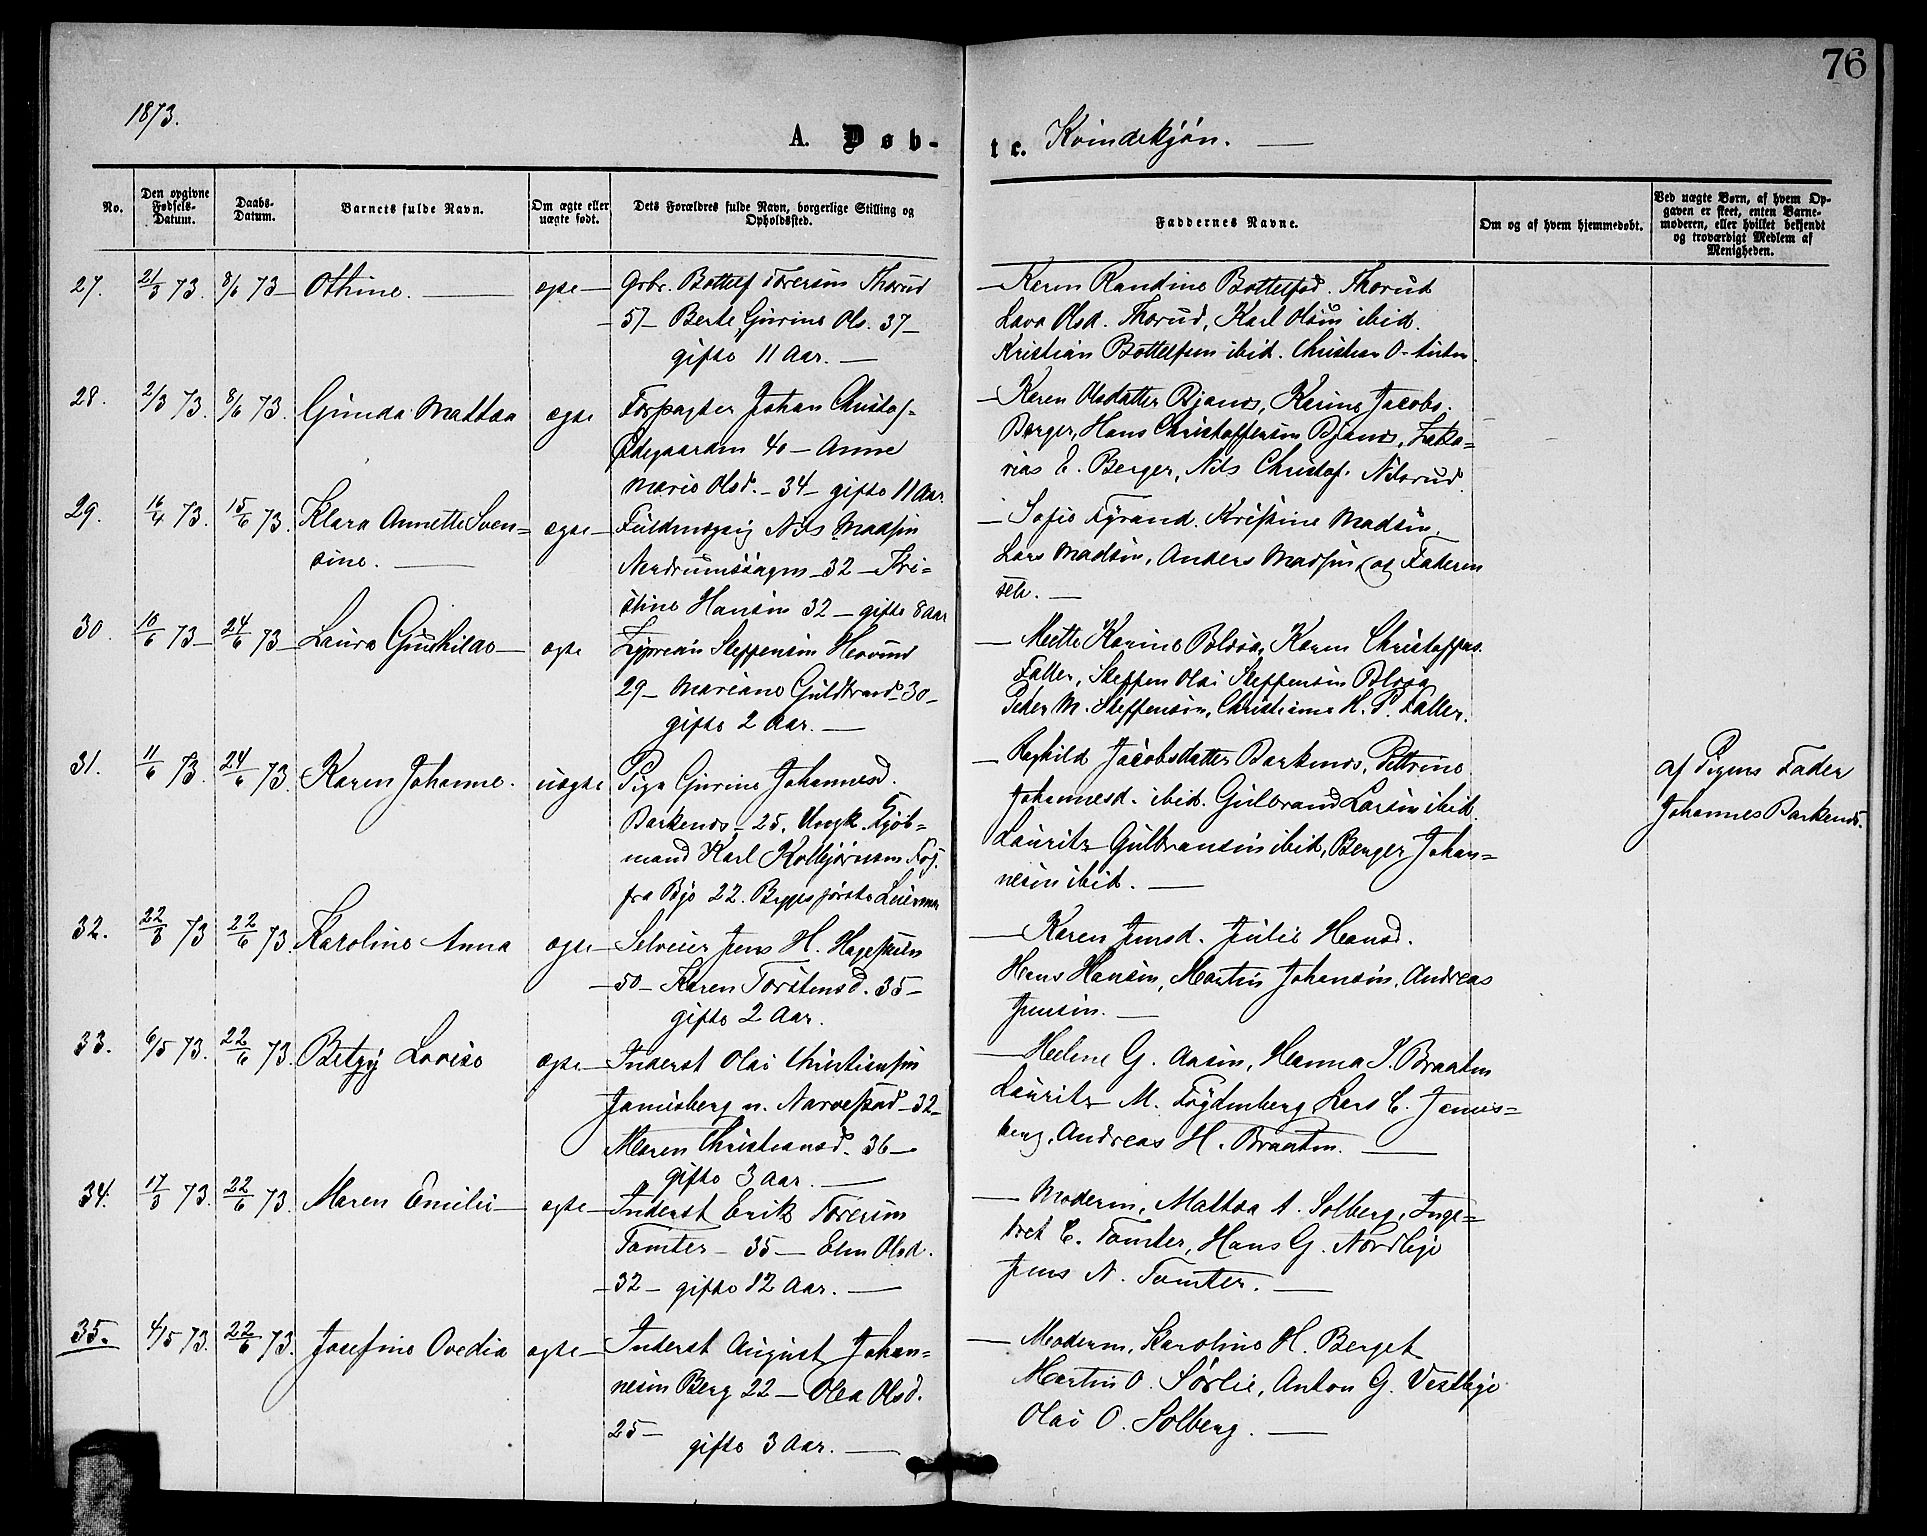 76
1873.
A. Døb-
te. Kvindekjøn. —
No.
Den opgivne Fødsels-Datum.
Daabs-Datum.
Barnets fulde Navn.
Om ægte eller uægte født.
Dets Forældres fulde Navn, borgerlige Stilling og Opholdssted.
Faddernes Navne.
Om og af hvem hjemmedøbt.
Ved uægte Børn, af hvem Opgaven er skeet, enten Barnemoderen, eller hvilket bekjendt og troværdigt Medlem af Menigheden.
27. 21/3 73. 8/6 73 — Othine. — ægte —
Grbr. Bottolf Torersen Thorud
— 57 — Berte Gurine Ols. 37 —
gifte 11 Aar. —
— Karen Randine Bottolfsd. Thorud
Lava Olsd. Thorud, Karl Olsen ibid.
Kristian Bottelfsen ibid. Christian O.
28. 2/3 73. 8/6 73. Gunda Mattea ægte
Forpagter Johan Christof.
Ødegaarden 40 — Anne
Marie Olsd. — 34 — gifte 11 Aar.
— Karen Olsdatter Bjanes, Karine Jacobs.
Berger, Hans Christoffersen Bjanes, Zaka=
rias E. Berger, Nils Christof. Nilsrud.
29. 16/4 73. 15/6 73. Klara Annette Sven=
sine. — ægte —
Fuldmægtig Nils Madsen
Nerdrumssagen — 32 — Kri=
stine Hansen 32 — gifte 8 Aar
— Sofie Fyrand. Kristine Madsen,
Lars Madsen, Anders Madsen og Faderen
selv. —
30. 10/6 73 — 24/6 73 — Laura Gunhilda — ægte
Zyprian Steffensen
29 — Mariane Guldbrands. 30 —
gifte 2 Aar. —
— Mette Karine Bolsøa, Karen Christoffers.
Faller, Steffen Olai Steffensen
Peder M. Steffensen, Christiane H. P. Faller.
31. 11/6 73. 24/6 73. Karen Johanne. uægte
Pige Gurine Johannesd.
Barkenes — 25. Ungk. Kjøb=
mand Karl Kolbjørnsen
fra Bjø 22. Begges første Leierm.
— Raghild Jacobsdatter Barknes, Pettrine
Johannesd. ibid. Gulbrand Larsen ibid.
Lauritz Gulbransen ibid, Berger Johan=
nesen ibid. —
af Pigens Fader
Johannes Barkenes.
32. 22/3 73 22/6 73. Karoline Anna ægte —
Selveier Jens H.
— 50 — Karen Torstensd. 35 —
gifte 2 Aar.
— Karen Jensd. Julie Hansd.
Hans Hansen, Martin Johansen, Andreas
Jensen. —
33. 6/5 73. 22/6 73. Betzy Lovise ægte —
Inderst Olai Christiansen
Jamisberg n. Narvestad — 32 —
Maren Christiansd. 36 —
gifte 3 Aar. —
— Helene G. Aasen, Hanna S. Braaten
Lauritz M. Føydenberg Lars C. Jamis=
berg, Andreas H. Braaten. —
34. 17/3 73. 22/6 73. Maren Emilie — ægte —
Inderst Erik Torersen
Tomter — 35 — Elen Olsd.
— 32 — gifte 12 Aar. —
— Moderen, Mattea A. Solberg, Inge=
bret E. Tomter, Hans G. Nordbye
Jens N. Tomter. —
35. 4/5 73. 22/6 73. Josefine Ovedia ægte —
Inderst August Johan=
nesen Berg 22 — Olea Olsd.
25 — gifte 3 Aar. —
— Moderen, Karoline H. Berget
Martin O. Sørlie, Anton G. Vestbye
Olai O. Solberg. —